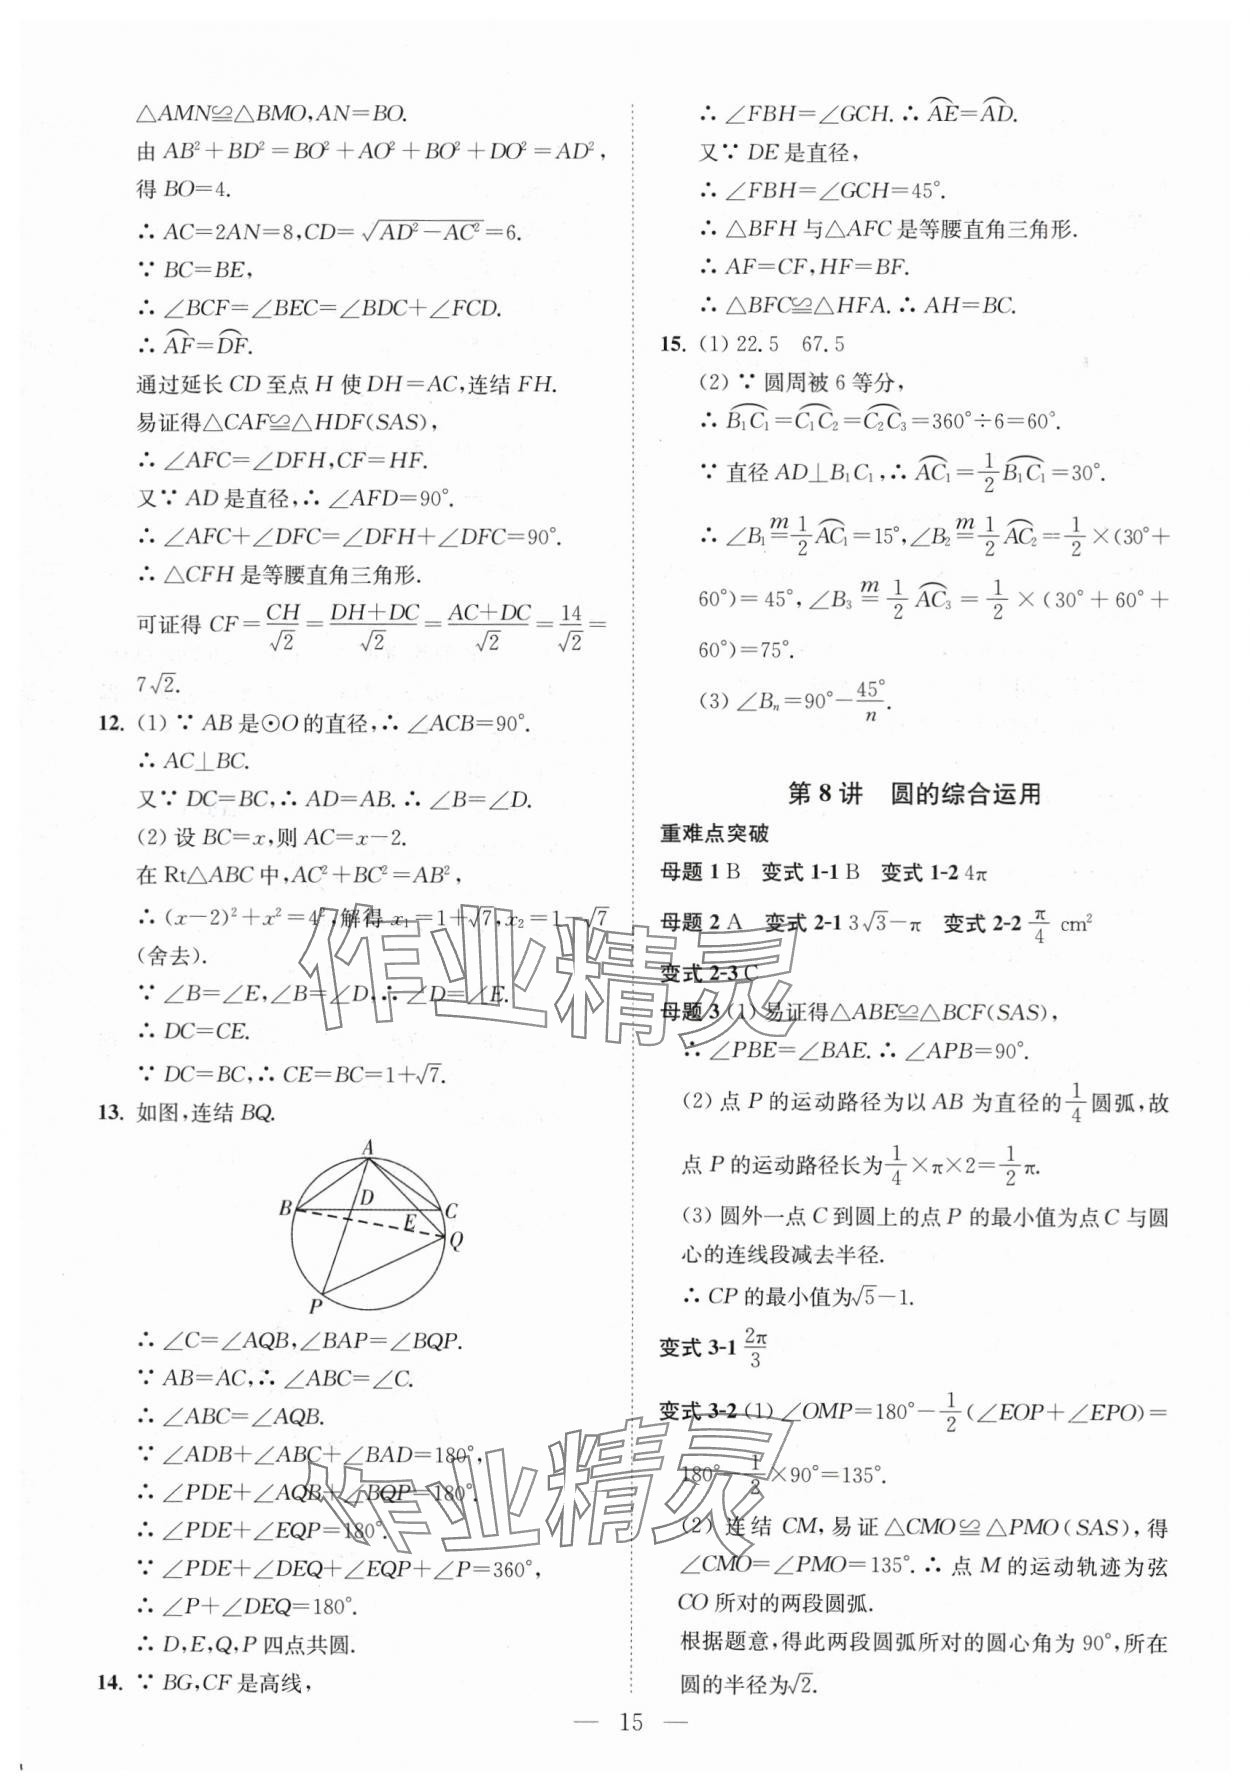 △AMN≌△BMO,AN=BO.
由 AB²+BD²=BO²+AO²+BO²+DO²=AD²,
得 BO=4.
∴ AC=2AN=8,CD=√(AD²-AC²)=6.
∵ BC=BE,
∴ ∠BCF=∠BEC=∠BDC+∠FCD.
∴ ⌒AF=⌒DF.
通过延长 CD 至点 H 使 DH=AC,连结 FH.
易证得△CAF≌△HDF(SAS),
∴ ∠AFC=∠DFH,CF=HF.
又∵ AD 是直径,∴ ∠AFD=90°.
∴ ∠AFC+∠DFC=∠DFH+∠DFC=90°.
∴ △CFH 是等腰直角三角形.
可证得 CF=CH/√2=(DH+DC)/√2=(AC+DC)/√2=14/√2=
7√2.
12. (1) ∵ AB 是⊙O 的直径,∴ ∠ACB=90°.
∴ AC⊥BC.
又∵ DC=BC,∴ AD=AB.∴ ∠B=∠D.
(2) 设 BC=x,则 AC=x-2.
在 Rt△ABC 中,AC²+BC²=AB²,
∴ (x-2)²+x²=4²,解得 x₁=1+√7,x₂=1-√7
(舍去).
∵ ∠B=∠E,∠B=∠D,∴ ∠D=∠E.
∴ DC=CE.
∵ DC=BC,∴ CE=BC=1+√7.
13. 如图,连结 BQ.
A
B
D
E
C
Q
P
∴ ∠C=∠AQB,∠BAP=∠BQP.
∵ AB=AC,∴ ∠ABC=∠C.
∴ ∠ABC=∠AQB.
∵ ∠ADB+∠ABC+∠BAD=180°,
∴ ∠PDE+∠AQB+∠BQP=180°.
∴ ∠PDE+∠EQP=180°.
∵ ∠PDE+∠DEQ+∠EQP+∠P=360°,
∴ ∠P+∠DEQ=180°.
∴ D,E,Q,P 四点共圆.
14. ∵ BG,CF 是高线,
∴ ∠FBH=∠GCH.∴ ⌒AE=⌒AD.
又∵ DE 是直径,
∴ ∠FBH=∠GCH=45°.
∴ △BFH 与△AFC 是等腰直角三角形.
∴ AF=CF,HF=BF.
∴ △BFC≌△HFA.∴ AH=BC.
15. (1) 22.5 67.5
(2) ∵ 圆周被 6 等分,
∴ ⌒B₁C₁=⌒C₁C₂=⌒C₂C₃=360°÷6=60°.
∵ 直径 AD⊥B₁C₁,∴ ⌒AC₁=1/2⌒B₁C₁=30°.
∴ ∠B₁ m= 1/2⌒AC₁=15°,∠B₂ m= 1/2⌒AC₂=1/2×(30°+
60°)=45°,∠B₃ m= 1/2⌒AC₃=1/2×(30°+60°+
60°)=75°.
(3) ∠Bₙ=90°-45°/n.
第 8 讲 圆的综合运用
重难点突破
母题 1 B 变式 1-1 B 变式 1-2 4π
母题 2 A 变式 2-1 3√3-π 变式 2-2 π/4 cm²
变式 2-3 C
母题 3 (1) 易证得△ABE≌△BCF(SAS),
∴ ∠PBE=∠BAE.∴ ∠APB=90°.
(2) 点 P 的运动路径为以 AB 为直径的1/4圆弧,故
点 P 的运动路径长为1/4×π×2=1/2π.
(3) 圆外一点 C 到圆上的点 P 的最小值为点 C 与圆
心的连线段减去半径.
∴ CP 的最小值为√5-1.
变式 3-1 2π/3
变式 3-2 (1) ∠OMP=180°-1/2(∠EOP+∠EPO)=
180°-1/2×90°=135°.
(2) 连结 CM,易证△CMO≌△PMO(SAS),得
∠CMO=∠PMO=135°.∴ 点 M 的运动轨迹为弦
CO 所对的两段圆弧.
根据题意,得此两段圆弧所对的圆心角为 90°,所在
圆的半径为√2.
— 15 —
作业精灵
作业精灵